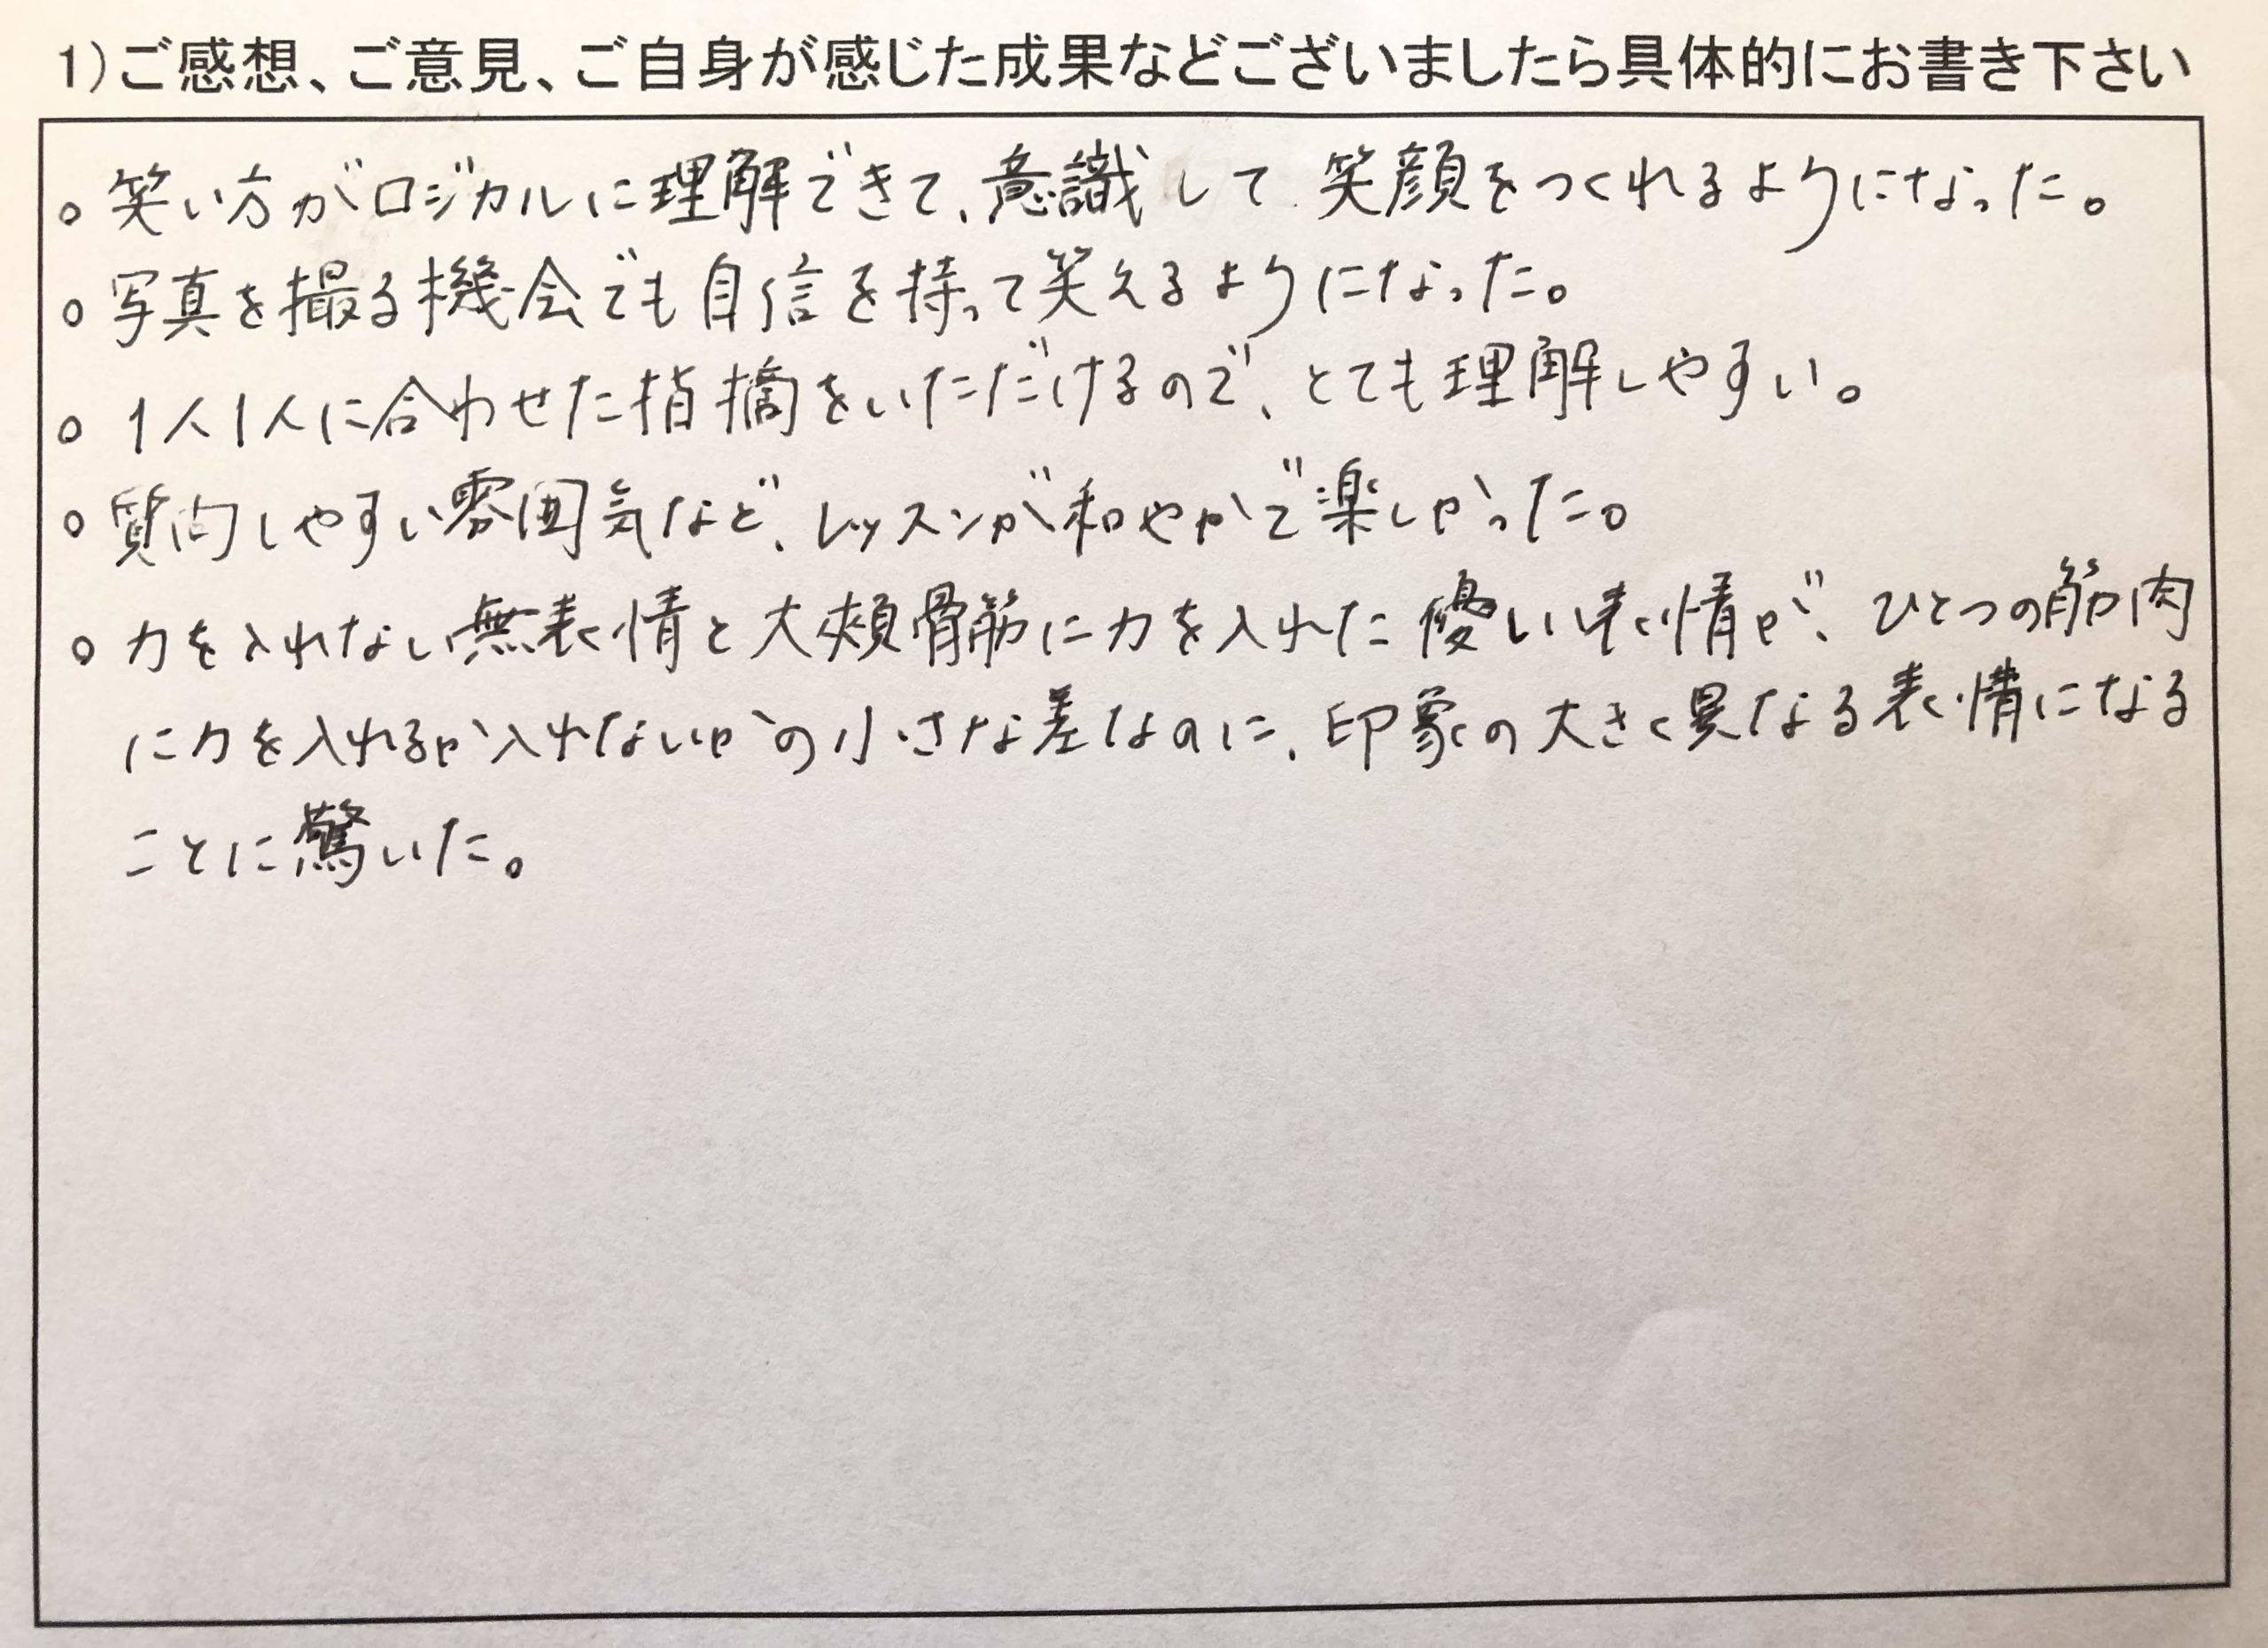 1)ご感想、ご意見、ご自身が感じた成果などございましたら具体的にお書き下さい
○ 笑い方がロジカルに理解できて、意識して笑顔をつくれるようになった。
○ 写真を撮る機会でも自信を持って笑えるようになった。
○ 1人1人に合わせた指摘をいただけるので、とても理解しやすい。
○ 質問しやすい雰囲気など、レッスンが和やかで楽しかった。
○ 力を入れない無表情と大頬骨筋に力を入れた優しい表情が、ひとつの筋肉
に力を入れるか入れないかの小さな差なのに、印象の大きく異なる表情になる
ことに驚いた。